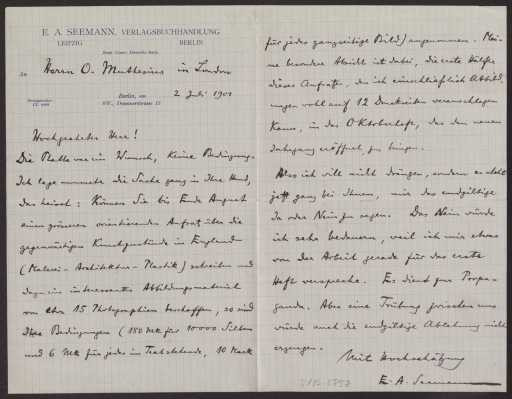 E. A. SEEMANN, VERLAGSBUCHHANDLUNG
LEIPZIG BERLIN
An Herrn O. Muthesius in London
Berlin, am 2 Juli 1901
Hochgeehrter Herr!
Die Platte war ein Wunsch, keine Bedingung.
Ich lege nunmehr die Sache ganz in Ihre Hand,
das heisst: Können Sie bis Ende August
einen grösseren orientierenden Aufsatz über die
gegenwärtigen Kunstzustände in England
(Malerei - Architektur - Plastik) schreiben und
dazu ein interessantes Abbildungsmaterial
von etwa 15 Photographien beschaffen, so sind
Ihre Bedingungen (180 Mk für 10000 Silben
und 6 Mk für jedes im Text stehende, 10 Mark
für jedes ganzseitige Bild) angenommen. Meine
besondere Absicht ist dabei, die erste Hälfte
dieses Aufsatzes, den ich einschliesslich Abbildungen
wohl auf 12 Druckseiten veranschlagen
kann, in das Oktoberheft, das den neuen
Jahrgang eröffnet, zu bringen.
Also ich will nicht drängen, sondern es steht
jetzt ganz bei Ihnen, mir das endgültige
Ja oder Nein zu sagen. Das Nein würde
ich sehr bedauern, weil ich mir etwas
von der Arbeit gerade für das erste
Heft verspreche. Es dient zur Propaganda.
Aber eine Trübung zwischen uns
würde auch die endgültige Ablehnung nicht
erzeugen.
Mit Hochschätzung
E. A. Seemann